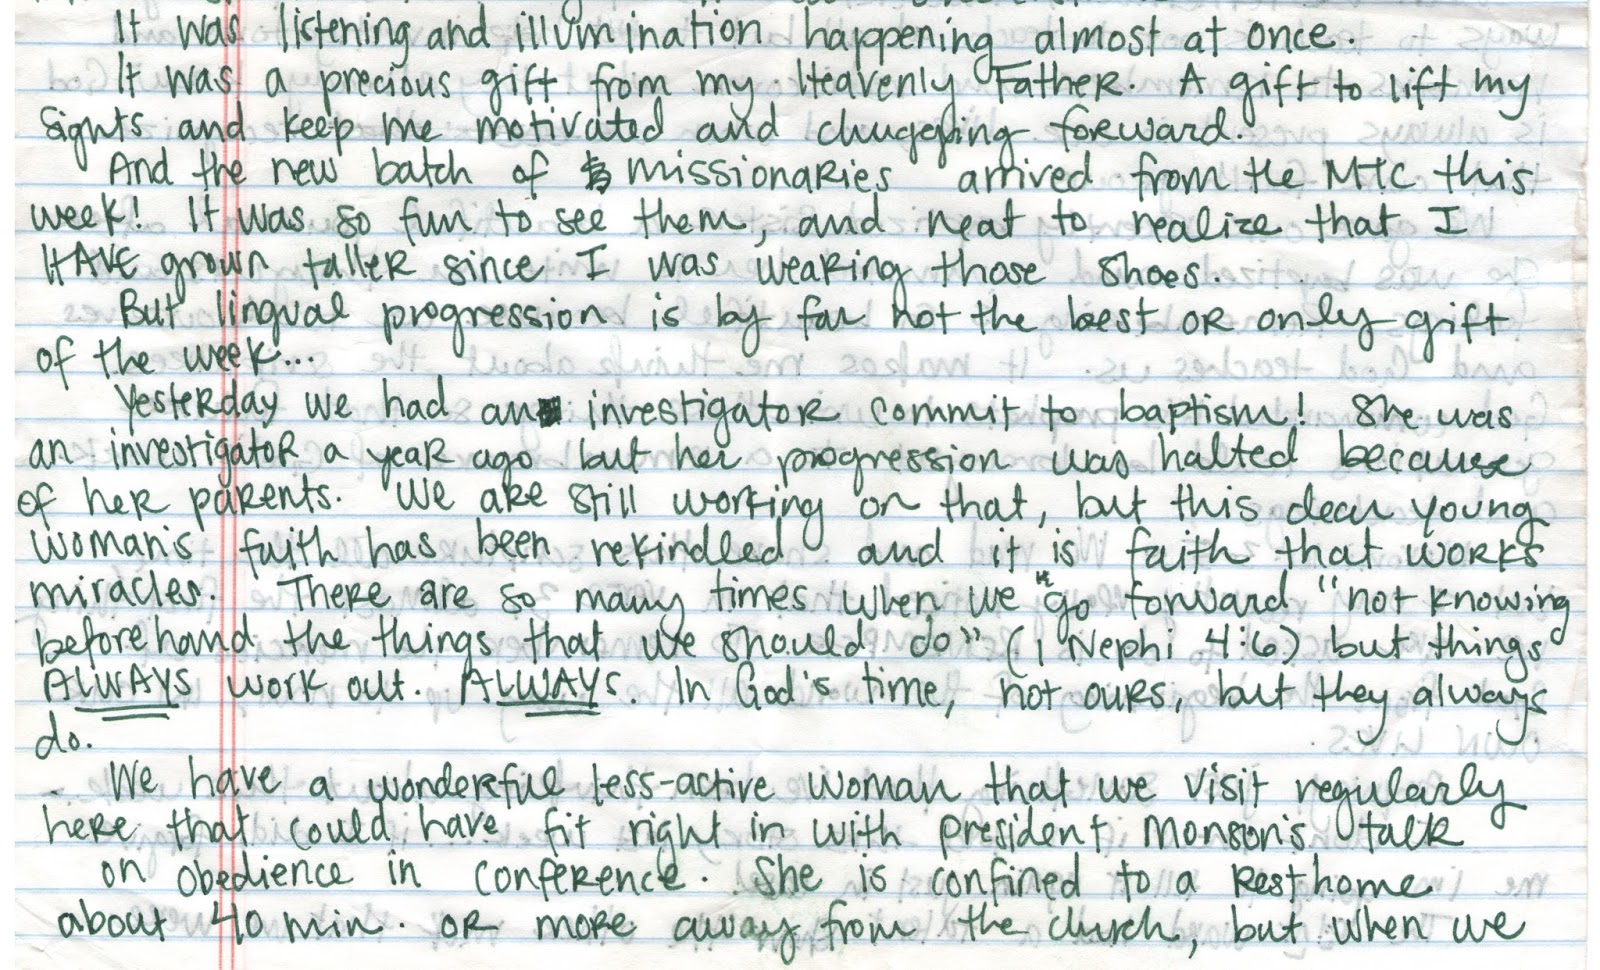 It was listening and illumination happening almost at once.
It was a precious gift from my Heavenly Father. A gift to lift my
sights and keep me motivated and chugging forward.
And the new batch of missionaries arrived from the MTC this
week! It was so fun to see them, and neat to realize that I
HAVE grown taller since I was wearing those shoes.
But lingual progression is by far not the best or only gift
of the week...
Yesterday we had an investigator commit to baptism! She was
an investigator a year ago but her progression was halted because
of her parents. We are still working on that, but this dear young
woman's faith has been rekindled and it is faith that works
miracles. There are so many times when we "go forward "not knowing
beforehand the things that we should do" (1 Nephi 4:6) but things
ALWAYS work out. ALWAYS. In God's time, not ours, but they always
do.
We have a wonderful less-active woman that we visit regularly
here that could have fit right in with president Monson's talk
on obedience in conference. She is confined to a rest home
about 40 min. or more away from the church, but when we